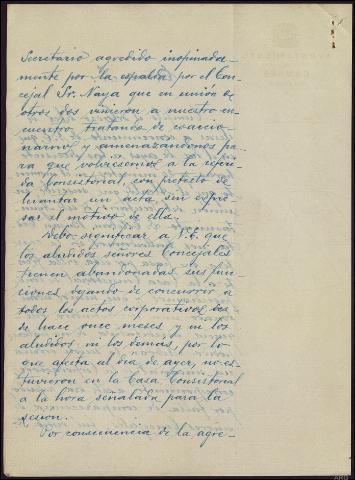 Secretario agredido inopinada-
mente por la espalda por el Con-
cejal Sr. Naya que en unión de
otros dos vinieron a nuestro en-
cuentro, tratando de coaccio-
narnos y amenazandonos pa-
ra que volviesemos a la referi-
da Consistorial, con pretexto de
levantar un acta, sin expre-
sar el motivo de ella.
Debo significar a V.E. que
los aludidos señores Concejales
tienen abandonadas sus fun-
ciones dejando de concurrir a
todos los actos corporativos des-
de hace once meses y ni los
aludidos ni los demás, por lo
que afecta al dia de ayer, no es-
tuvieron en la Casa Consistorial
a la hora señalada para la
sesion.
Por consecuencia de la agre-